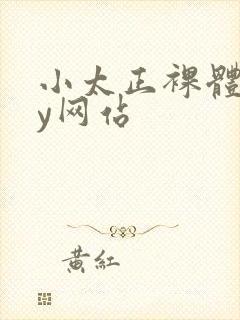 小太正裸體
y网佔
黃紅